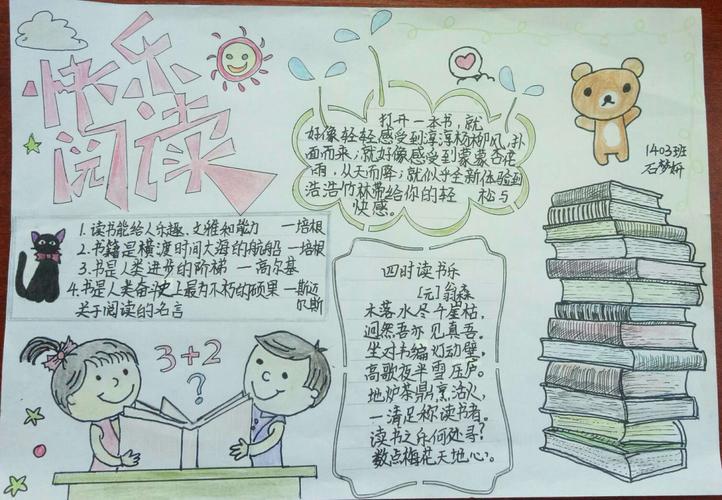 快乐
阅读
打开一本书,就
好像轻轻感受到淳淳杨柳风,扑
面而来;就好像感受到蒙蒙杏花
雨,从天而降;就似乎全新体验到
浩浩竹林带给你的轻 松与
快感。
1403班
石梦妍
1.读书能给人乐趣、文雅和能力 —培根
2.书籍是横渡时间大海的航船 —培根
3.书是人类进步的阶梯 —高尔基
4.书是人类奋斗史上最为不朽的硕果—斯迈
尔斯
关于阅读的名言
四时读书乐
[元]翁森
木落水尽千崖枯,
迥然吾亦见真吾。
坐对韦编灯动壁,
高歌夜半雪压庐。
地炉茶鼎烹活火,
一清足称读书者。
读书之乐何处寻?
数点梅花天地心。
3+2
?